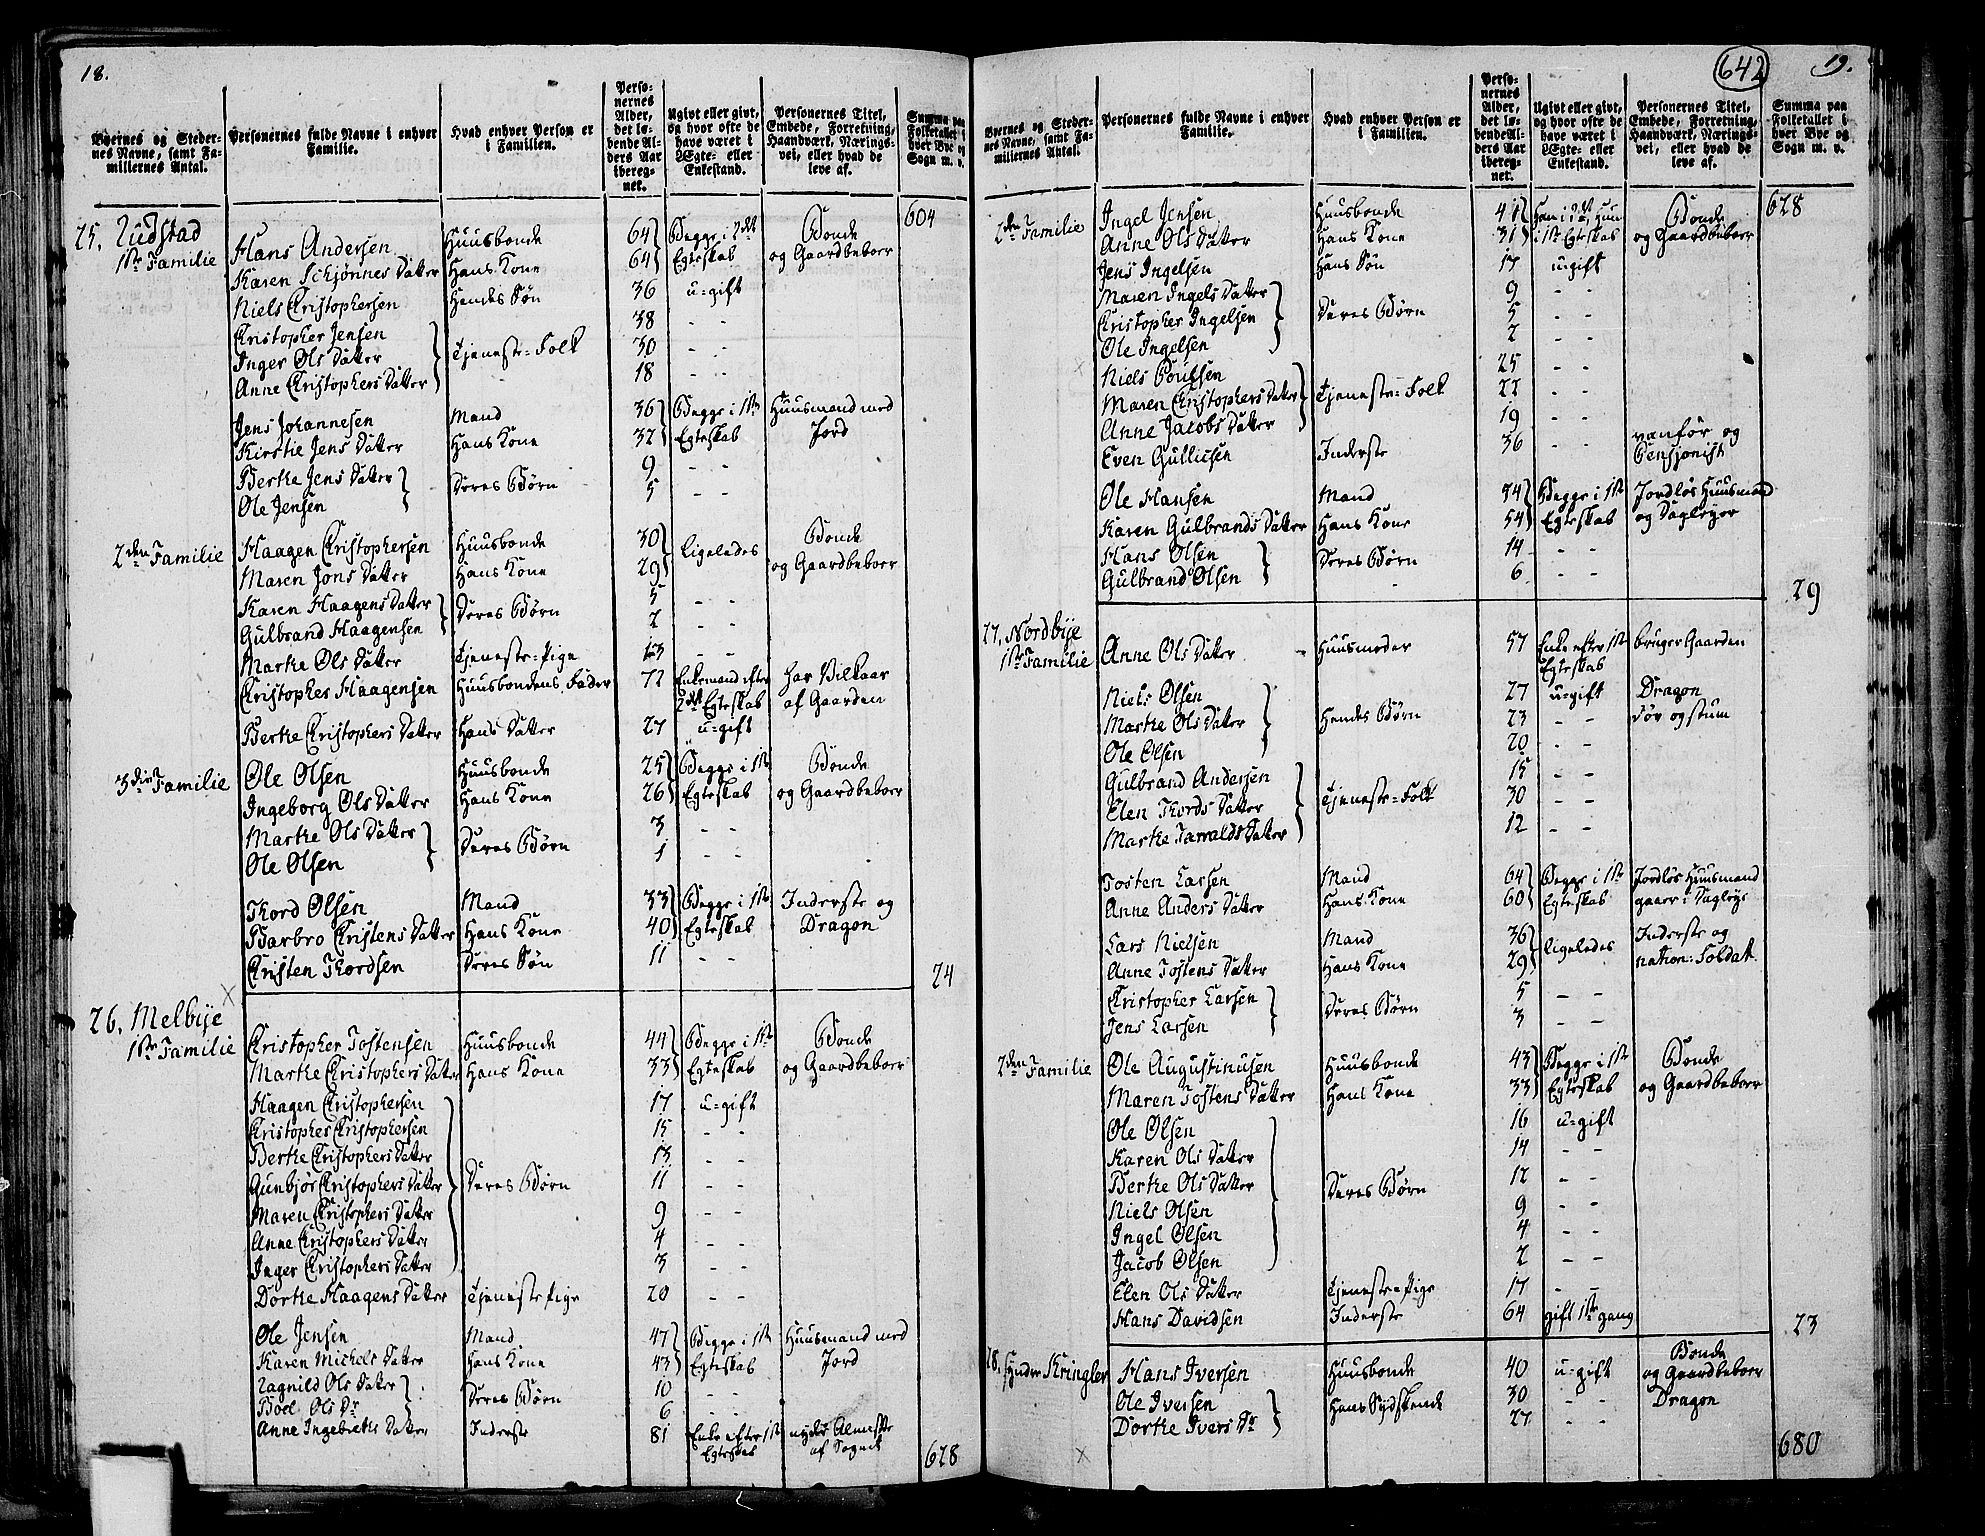 18.
Byernes og Steder-
nes Navne, samt Fa-
miliernes Antal.
Personernes fulde Navne i enhver
Familie.
Hvad enhver Person er
i Familien.
Perso-
nernes
Alder,
det lø-
bende Al-
ders Aar
ibereg-
net.
Ugivt eller givt,
og hvor ofte de
have været i
Ægte- eller
Enkestand.
Personernes Titel,
Embede, Forretning,
Haandværk, Nærings-
vei, eller hvad de
leve af.
Summa paa
Folketallet i
hver Bye og
Sogn m. v.
604
25. Rudstad
1ste Familie Hans Andersen Huusbonde 64 Begge i 2det Bonde
Karen Schjønnes Datter Hans Kone 64 Egteskab og Gaardbeboer
Niels Christophersen Hendes Søn 36 u-gift
Christopher Jensen 38 - -
Inger Ols Datter Tjeneste-Folk 30 - -
Anne Christophers Datter 18 - -
Jens Johannesen Mand 36 Begge i 1ste Huusmand med
Kirstie Jens Datter Hans Kone 32 Egteskab Jord
Berthe Jens Datter 9 - -
Ole Jensen Deres Børn 5 - -
2den Familie Haagen Christophersen Huusbonde 30 ligeledes Bonde
Maren Jons Datter Hans Kone 29 og Gaardbeboer
Karen Haagens Datter Deres Børn 5 - -
Gulbrand Haagensen 2 - -
Marthe Ols Datter Tjeneste-Pige 13 - -
Christopher Haagensen Huusbondens Fader 72 Enkemand efter har Vilkaar
2det Egteskab af Gaarden
Berthe Christophers Datter Hans Datter 27 u-gift
3die Familie Ole Olsen Huusbonde 25 Begge i 1ste Bonde
Ingeborg Ols Datter Hans Kone 26 Egteskab og Gaardbeboer
Marthe Ols Datter Deres Børn 3 - -
Ole Olsen 1 - -
Thord Olsen Mand 33 Begge i 1ste Inderste og
Barbro Christens Datter Hans Kone 40 Egteskab Dragon
Christen Thordsen Deres Søn 11 - -
24
26. Melbye
1ste Familie Christopher Tostensen Huusbonde 44 Begge i 1ste Bonde
Marthe Christophers Datter Hans Kone 33 Egteskab og Gaardbeboer
Haagen Christophersen 17 u-gift
Christopher Christophersen 15 - -
Berthe Christophers Datter 13 - -
Gunbjør Christophers Datter Deres Børn 11 - -
Maren Christophers Datter 9
Anne Christophers Datter 4 - -
Inger Christophers Datter 3 - -
Dorthe Haagens Datter Tjeneste Pige 20 - -
Ole Jensen Mand 47 Begge i 1ste Huusmand med
Karen Michels Datter Hans Kone 43 Egteskab Jord
Ragnild Ols Datter 10 - -
Boel Ols Dr Deres Børn 6 - -
Anne Ingebreths Datter Inderste 81 Enke efter 1ste nyder Almisse
Egteskab af Sognet
628
642
19.
Byernes og Steder-
nes Navne, samt Fa-
miliernes Antal.
Personernes fulde Navne i enhver
Familie.
Hvad enhver Person er
i Familien.
Perso-
nernes
Alder,
det lø-
bende Al-
ders Aar
ibereg-
net.
Ugivt eller givt,
og hvor ofte de
have været i
Ægte- eller
Enkestand.
Personernes Titel,
Embede, Forretning,
Haandværk, Nærings-
vei, eller hvad de
leve af.
Summa paa
Folketallet i
hver Bye og
Sogn m. v.
628
2den Familie Ingel Jensen Huusbonde 41 Han i 2det Hun Bonde
Anne Ols Datter Hans Kone 31 i 1ste Egteskab og Gaardbeboer
Jens Ingelsen Hans Søn 17 u-gift
Maren Ingels Datter 9 - -
Christopher Ingelsen Deres Børn 5 - -
Ole Ingelsen 2 - -
Niels Poulsen 25 - -
Maren Christophers Datter Tjeneste-Folk 22 - -
Anne Jacobs Datter 19 - -
Even Gullicsen Inderste 36 - - vanfør og
Pensjonist
Ole Hansen Mand 54 Begge i 1ste Jordløs Huusmand
Karen Gulbrands Datter Hans Kone 54 Egteskab og Dagleyer
Hans Olsen Deres Børn 14 - -
Gulbrand Olsen 6 - -
29
27. Nordbye
1ste Familie Anne Ols Datter Huusmoder 57 Enke efter 1ste bruger Gaarden
Egteskab
Niels Olsen 27 u-gift Dragon
Marthe Ols Datter Hendes Børn 23 - - døv og stum
Ole Olsen 20 - -
Gulbrand Andersen 15 - -
Elen Thords Datter Tjeneste-Folk 30 - -
Marthe Tarralds Datter 12 - -
Tosten Larsen Mand 64 Begge i 1ste Jordløs Huusmand
Anne Anders Datter Hans Kone 60 Egteskab gaaer i Dagleye
Lars Nielsen Mand 36 ligeledes Inderste og
Anne Tostens Datter Hans Kone 29 nation: Soldat
Christopher Larsen Deres Børn 5 - -
Jens Larsen 3 - -
2den Familie Ole Augustinusen Huusbonde 43 Begge i 1ste Bonde
Maren Tostens Datter Hans Kone 33 Egteskab og Gaardbeboer
Ole Olsen 16 u-gift
Karen Ols Datter 14 - -
Berthe Ols Datter 12 - -
Niels Olsen Deres Børn 9 - -
Ingel Olsen 4 - -
Jacob Olsen 2 - -
Elen Ols Datter Tjeneste Pige 17 - -
Hans Davidsen Inderste 64 gift 1ste gang
23
28. Syndre Kringler Hans Iversen Huusbonde 40 u-gift Bonde
og Gaardbeboer
Ole Iversen Hans Sydskende 30 - - Dragon
Dorthe Ivers Dr 27 - -
680